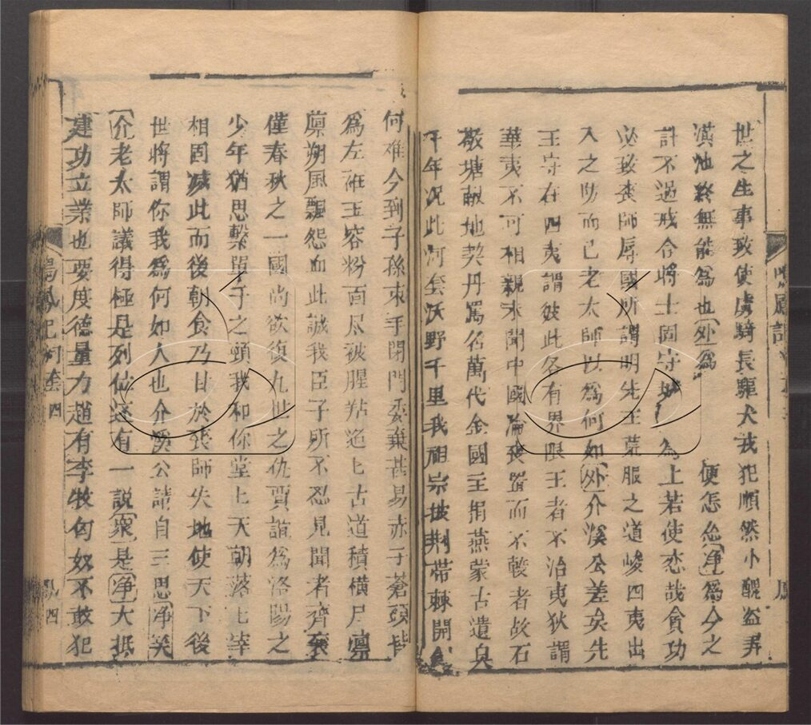 世之生事致使虜騎長驅犬戎犯順然小醜盜弄
潢池終無能為也外為 便怎么淨為今之
計不過戒令將士固守 為上若使恣哉貪功
必致喪師辱國所謂明先王荒服之道峻四夷出
入之防而已老太師以為何如外介溪公差矣先
王守在四夷謂彼此各有界限王者不治夷狄謂
華夷不可相親未聞中國淪喪置而不較者故石
敬塘割地契丹罵名萬代金國主捐燕蒙古遺臭
千年况此河套沃野千里我祖宗披荆帶棘開
何难今到子孫束手閉門委棄甚易赤子蒼頭皆
為左袵玉容粉面尽被腥羶道上古道積横尸凛
凛朔風飄怨血此誠我臣子所不忍見聞者齊襄
僅春秋之一國尚欲復九世之仇賈誼為洛陽之
少年猶思繫單于之頸我和你堂上天朝落上宰
相固滅此而後朝食乃甘於喪師失地使天下後
世將謂你我為何如人也介溪公請自三思淨笑
介老太師議得極是列位还有一説衆是淨大抵
建功立業也要度德量力趙有李牧匈奴不敢犯
鳴鳳記 河套 四